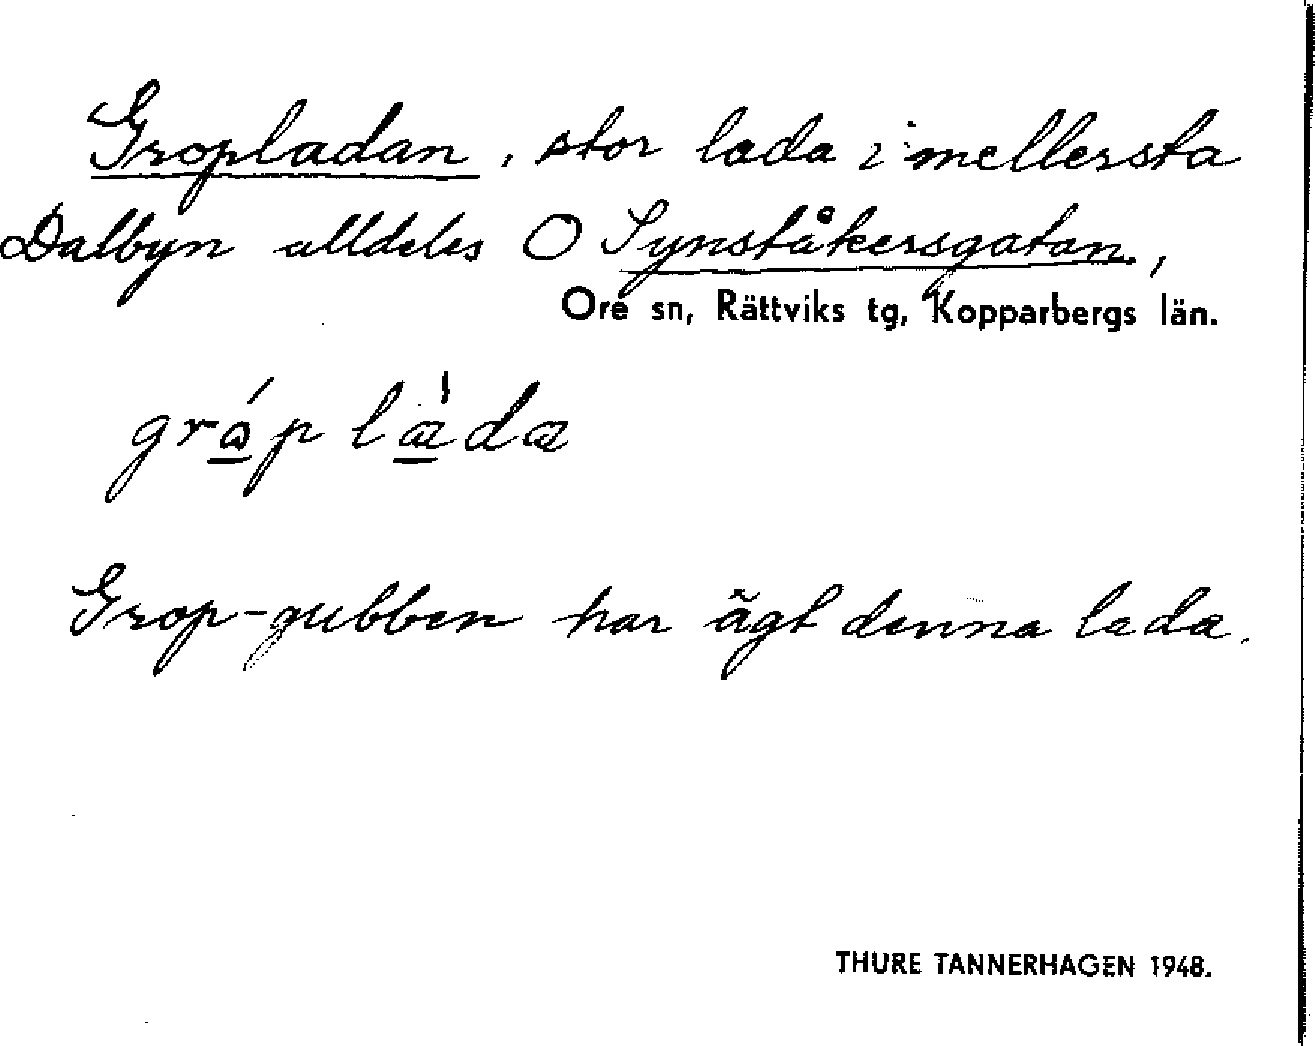 Gropladan, stor lada i mellersta
Dalbyn alldeles O Synståkersgatan.,
Ore sn, Rättviks tg, Kopparbergs län.
Grop-gubben har ägt denna lada.
THURE TANNERHAGEN 1948.